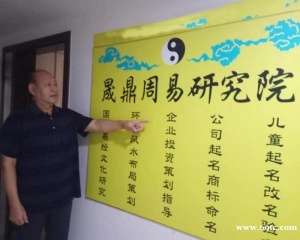 晟鼎周易研究院
国易经文化研究
环风水布局策划
企业投资策划指导
公司起名商标命名
儿童起名改名